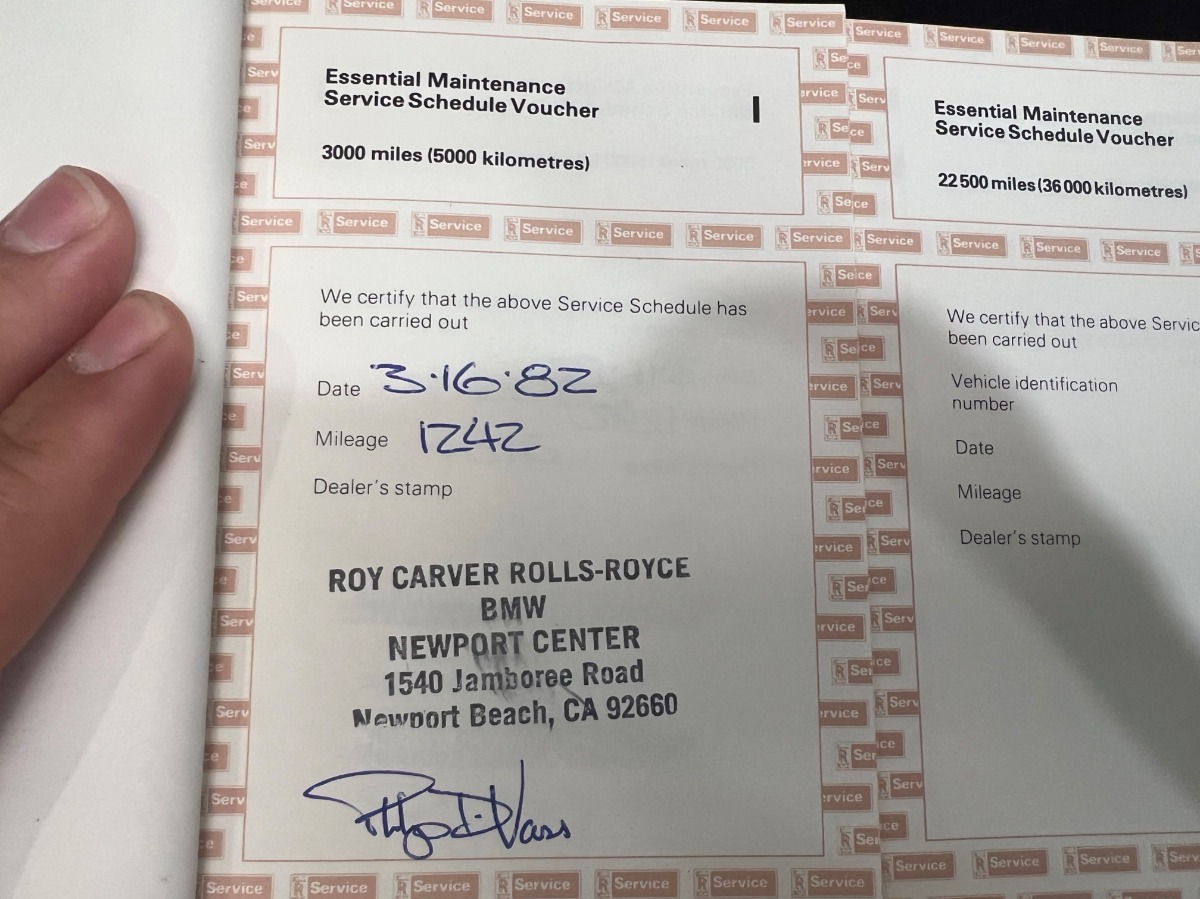 Essential Maintenance
Service Schedule Voucher
I
3000 miles (5000 kilometres)
We certify that the above Service Schedule has
been carried out
Date 3·16·82
Mileage 1242
Dealer's stamp
ROY CARVER ROLLS-ROYCE
BMW
NEWPORT CENTER
1540 Jamboree Road
Newport Beach, CA 92660
Essential Maintenance
Service Schedule Voucher
22 500 miles (36 000 kilometres)
We certify that the above Servic
been carried out
Vehicle identification
number
Date
Mileage
Dealer's stamp
Service Service Service Service Service Service Service
Service Service Service Service
Service Service Service Service Service Service Service
Service Service Service Service
Service Service Service Service Service Service Service
Service Service Service